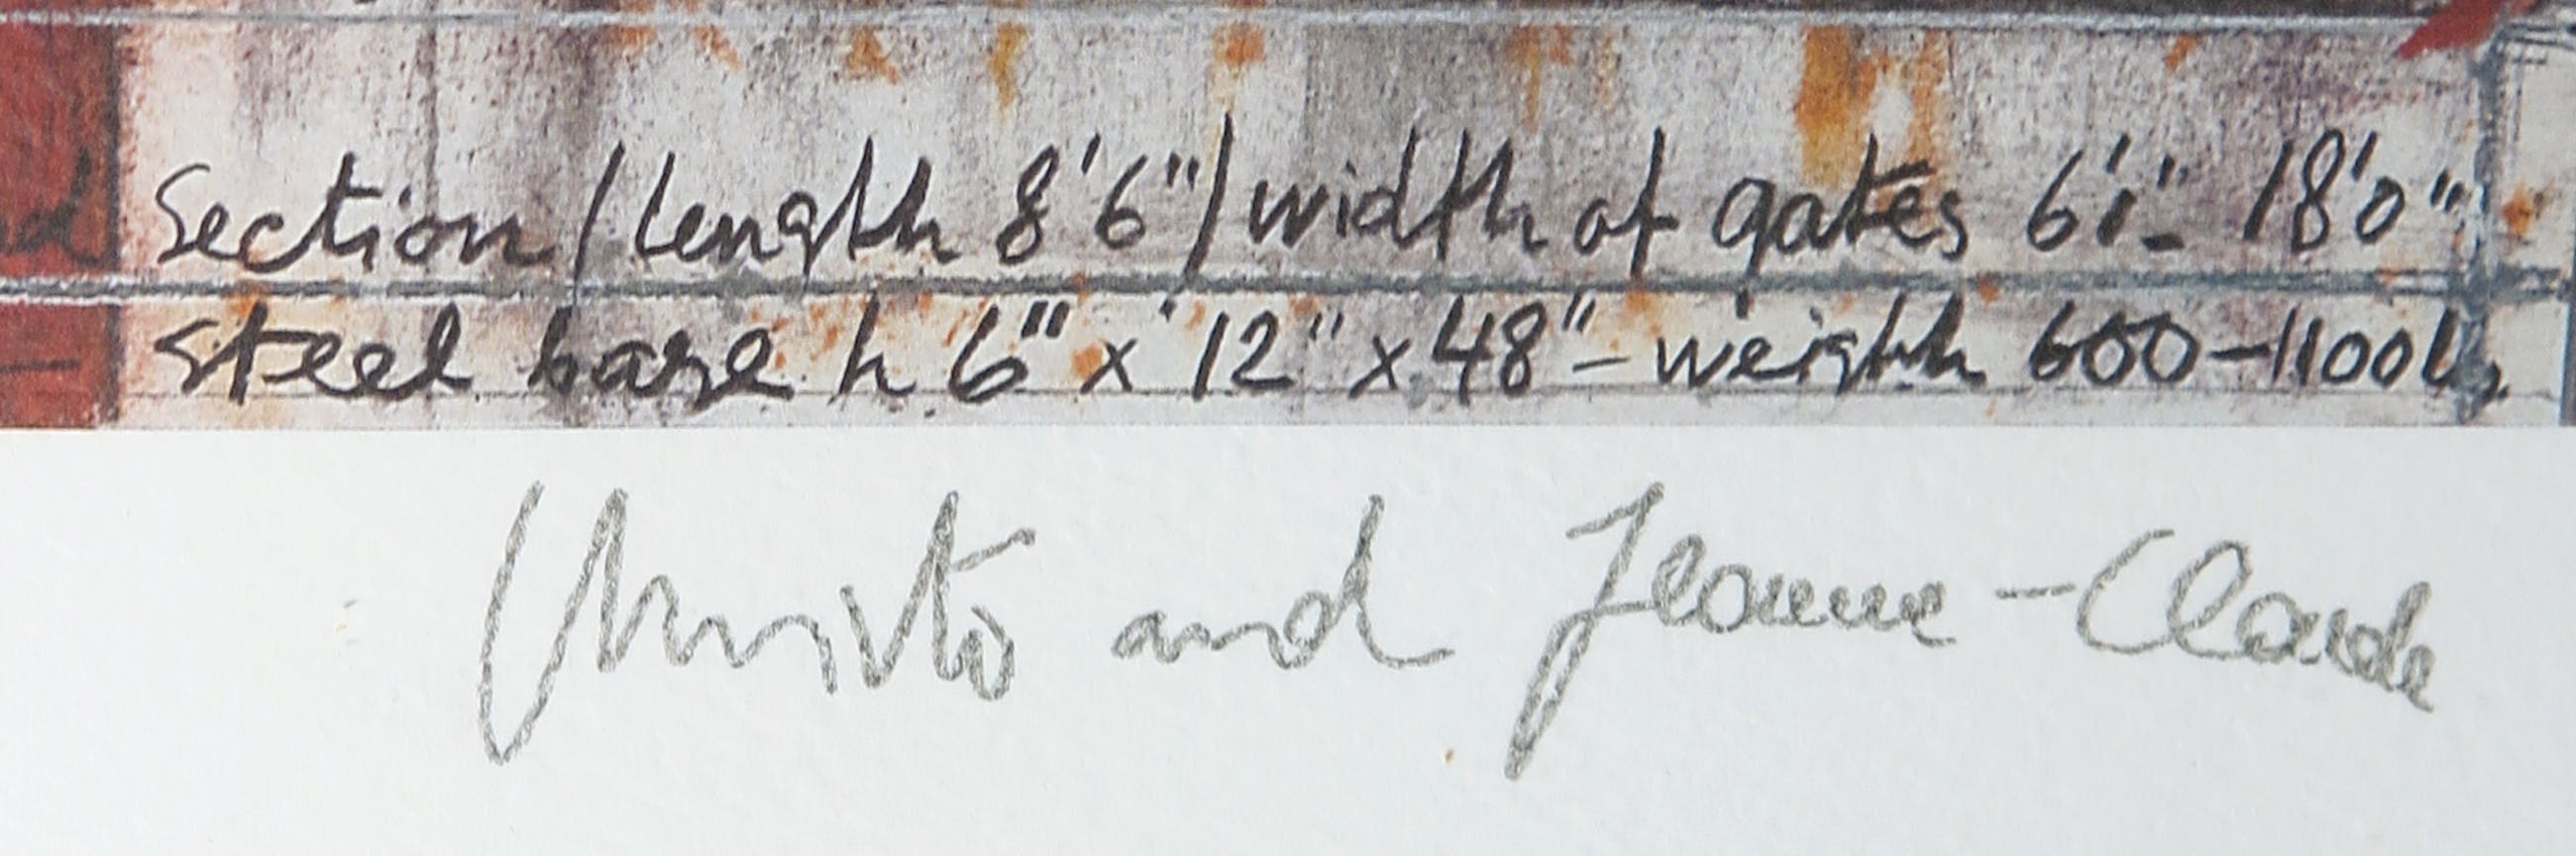 Section / length 8'6" / width of gates 6'1"- 18'0"
steel base h 6" x 12" x 48" - weighh 600-1100 lbs
Christo and Jeanne-Claude